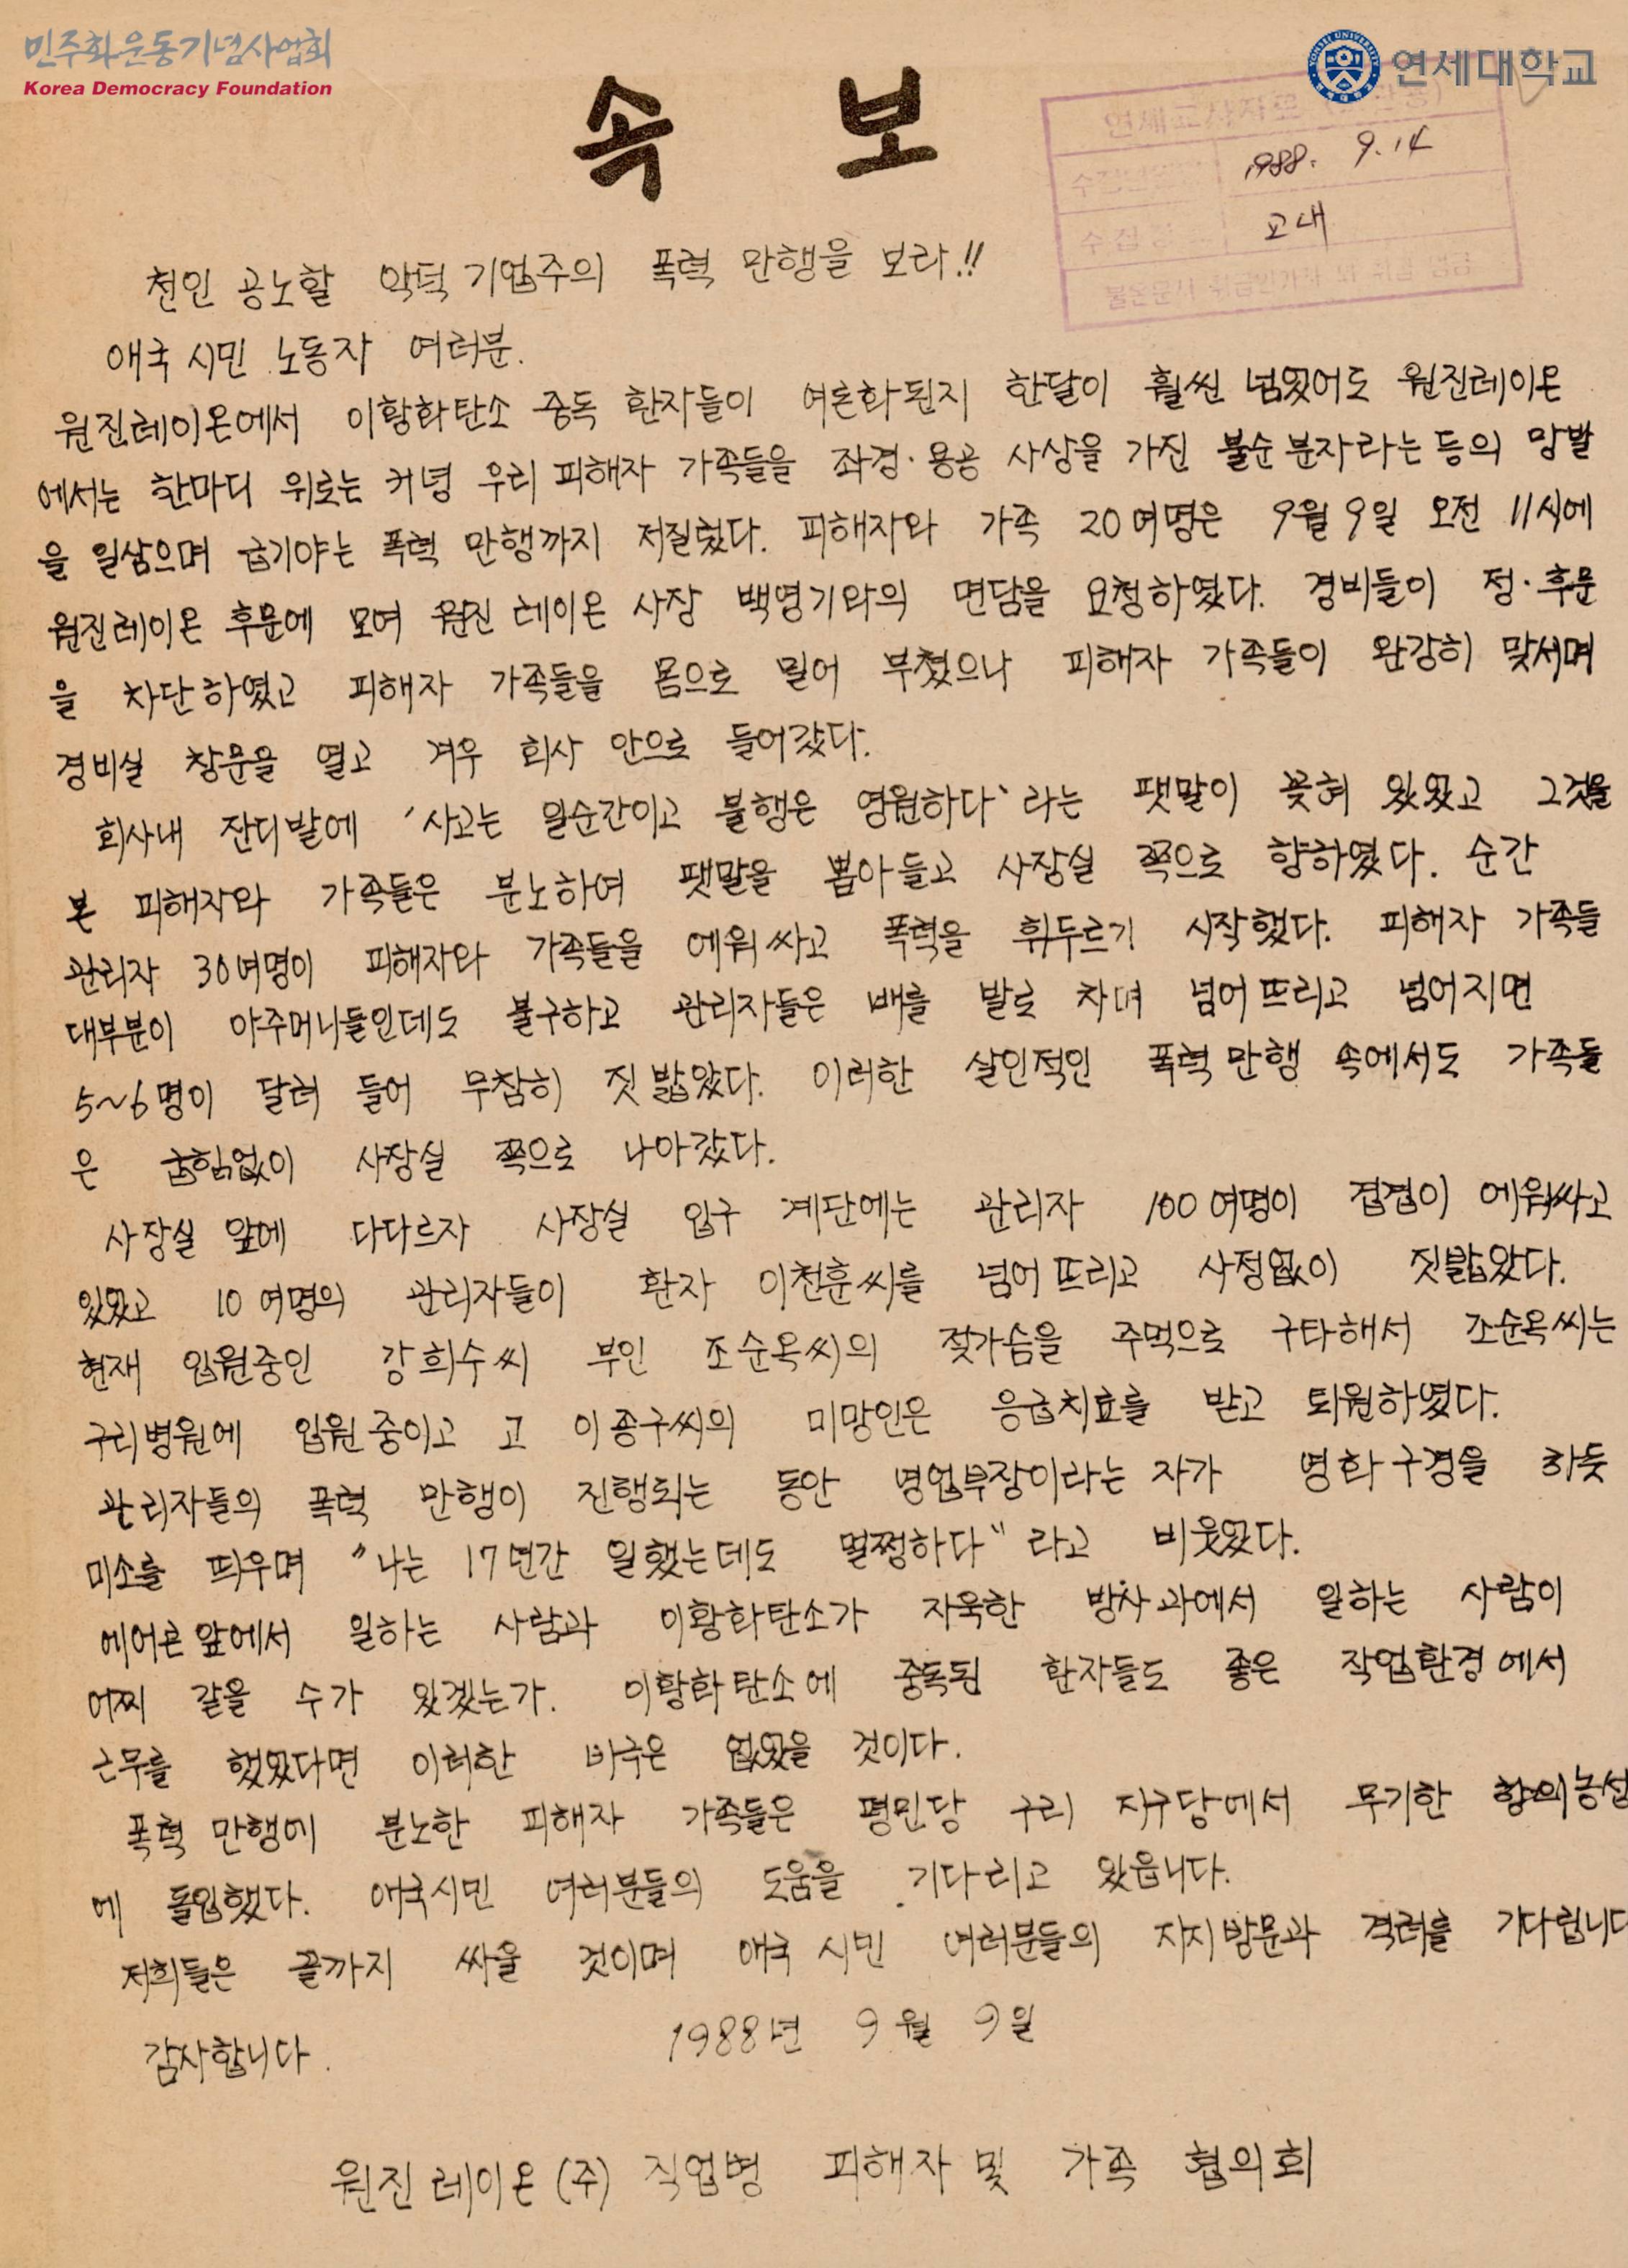 민주화운동기념사업회
Korea Democracy Foundation
연세대학교
속 보
1988. 9. 14
교내
천인 공노할 악덕 기업주의 폭력 만행을 보라!!
애국 시민 노동자 여러분.
원진레이온에서 이황화탄소 중독 환자들이 여론화된지 한달이 훨씬 넘었어도 원진레이온
에서는 한마디 위로는 커녕 우리 피해자 가족들을 좌경·용공 사상을 가진 불순 분자라는 등의 망발
을 일삼으며 급기야는 폭력 만행까지 저질렀다. 피해자와 가족 20여명은 9월 9일 오전 11시에
원진레이온 후문에 모여 원진 레이온 사장 백영기와의 면담을 요청하였다. 경비들이 정·후문
을 차단하였고 피해자 가족들을 몸으로 밀어 부쳤으나 피해자 가족들이 완강히 맞서며
경비실 창문을 열고 겨우 회사 안으로 들어갔다.
회사내 잔디밭에 '사고는 일순간이고 불행은 영원하다'라는 팻말이 꽂혀 있었고 그것을
본 피해자와 가족들은 분노하여 팻말을 뽑아들고 사장실 쪽으로 향하였다. 순간
관리자 30여명이 피해자와 가족들을 에워싸고 폭력을 휘두르기 시작했다. 피해자 가족들
대부분이 아주머니들인데도 불구하고 관리자들은 배를 발로 차며 넘어뜨리고 넘어지면
5~6명이 달려 들어 무참히 짓밟았다. 이러한 살인적인 폭력만행 속에서도 가족들
은 굽힘없이 사장실 쪽으로 나아갔다.
사장실 앞에 다다르자 사장실 입구 계단에는 관리자 100여명이 겹겹이 에워싸고
있었고 10여명의 관리자들이 환자 이천훈씨를 넘어뜨리고 사정없이 짓밟았다.
현재 입원중인 강희수씨 부인 조순옥씨의 젖가슴을 주먹으로 구타해서 조순옥씨는
구리병원에 입원중이고 고 이종구씨의 미망인은 응급치료를 받고 퇴원하였다.
관리자들의 폭력 만행이 진행되는 동안 영업부장이라는 자가 영화구경을 하듯
미소를 띄우며 "나는 17년간 일했는데도 멀쩡하다"라고 비웃었다.
에어콘앞에서 일하는 사람과 이황화탄소가 자욱한 방사과에서 일하는 사람이
어찌 같을 수가 있겠는가. 이황화탄소에 중독된 환자들도 좋은 작업환경에서
근무를 했었다면 이러한 비극은 없었을 것이다.
폭력 만행에 분노한 피해자 가족들은 평민당 구리 지구당에서 무기한 항의농성
에 돌입했다. 애국시민 여러분들의 도움을 기다리고 있읍니다.
저희들은 끝까지 싸울 것이며 애국 시민 여러분들의 지지방문과 격려를 기다립니다
감사합니다. 1988년 9월 9일
원진레이온(주) 직업병 피해자 및 가족 협의회